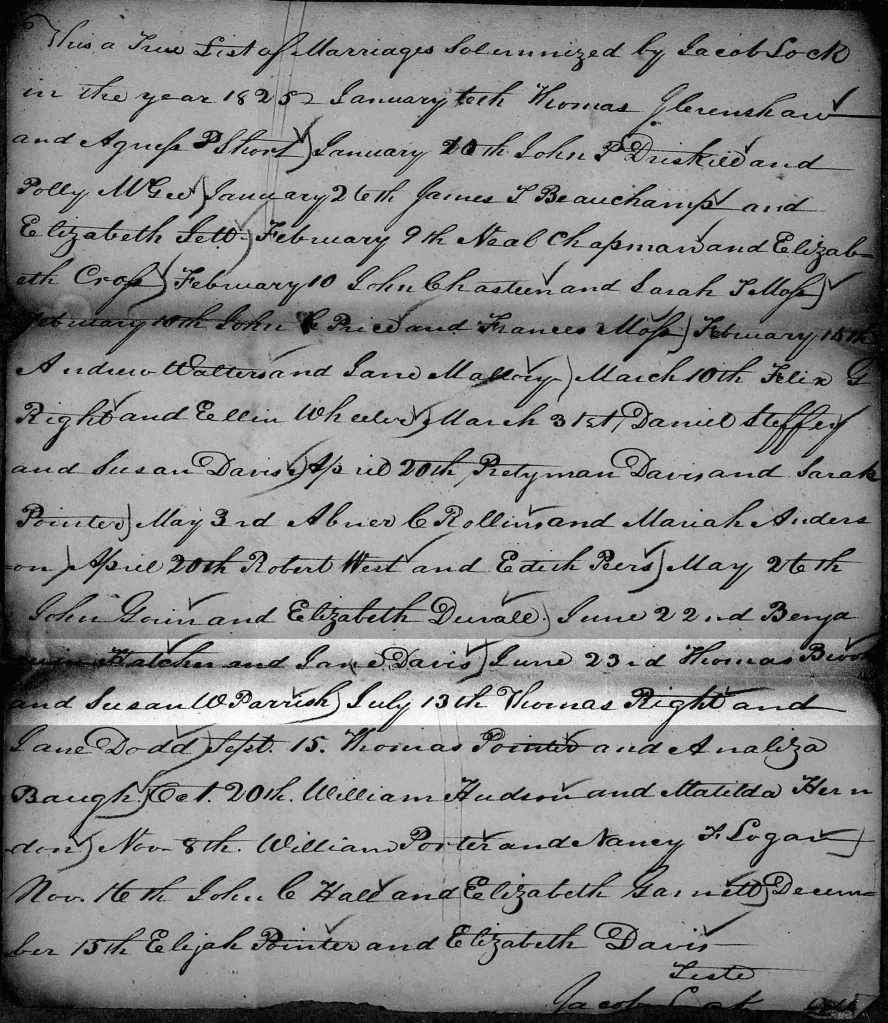 This a True List of Marriages Solemnized by Jacob Lock
in the year 1825 January 6th Thomas Glerenshaw
and Agness P Short) January 20th John P Driskill and
Polly McGee) January 26th James T Beauchamp and
Elizabeth Sett) February 9th Neal Chapman and Elizab-
eth Cross) February 10 John Chasteen and Sarah T Moss)
February 10th John C Price and Frances Moss) February 15th
Andrew Walters and Jane Mallory) March 10th Felix G
Right and Ellin Wheeler) March 31st, Daniel Steffey
and Susan Davis) April 20th, Pretyman Davis and Sarah
Pointer) May 3rd Abner C Rollins and Mariah Anders
-on) April 20th Robert West and Edith Peers) May 26th
John Goin and Elizabeth Duvall) June 22nd Benja
min Hatcher and Jane Davis) June 23rd Thomas Brook
and Susan W Parrish) July 13th Thomas Right and
Jane Dodd) Sept. 15. Thomas Pointer and Analiza
Baugh) Oct. 20th. William Hudson and Matilda Hern
don) Nov. 8th. William Porter and Nancy F Logan)
Nov. 16th John C Hall and Elizabeth Garnett) Decem-
ber 15th Elijah Pointer and Elizabeth Davis
Teste
Jacob Lock